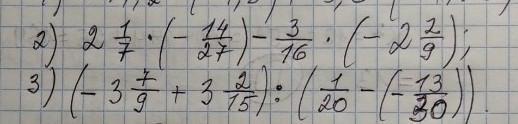 2) 2 1/7 · (- 14/27) - 3/16 · (- 2 2/9);
3) (- 3 7/9 + 3 2/15) : (1/20 - (- 13/30)).